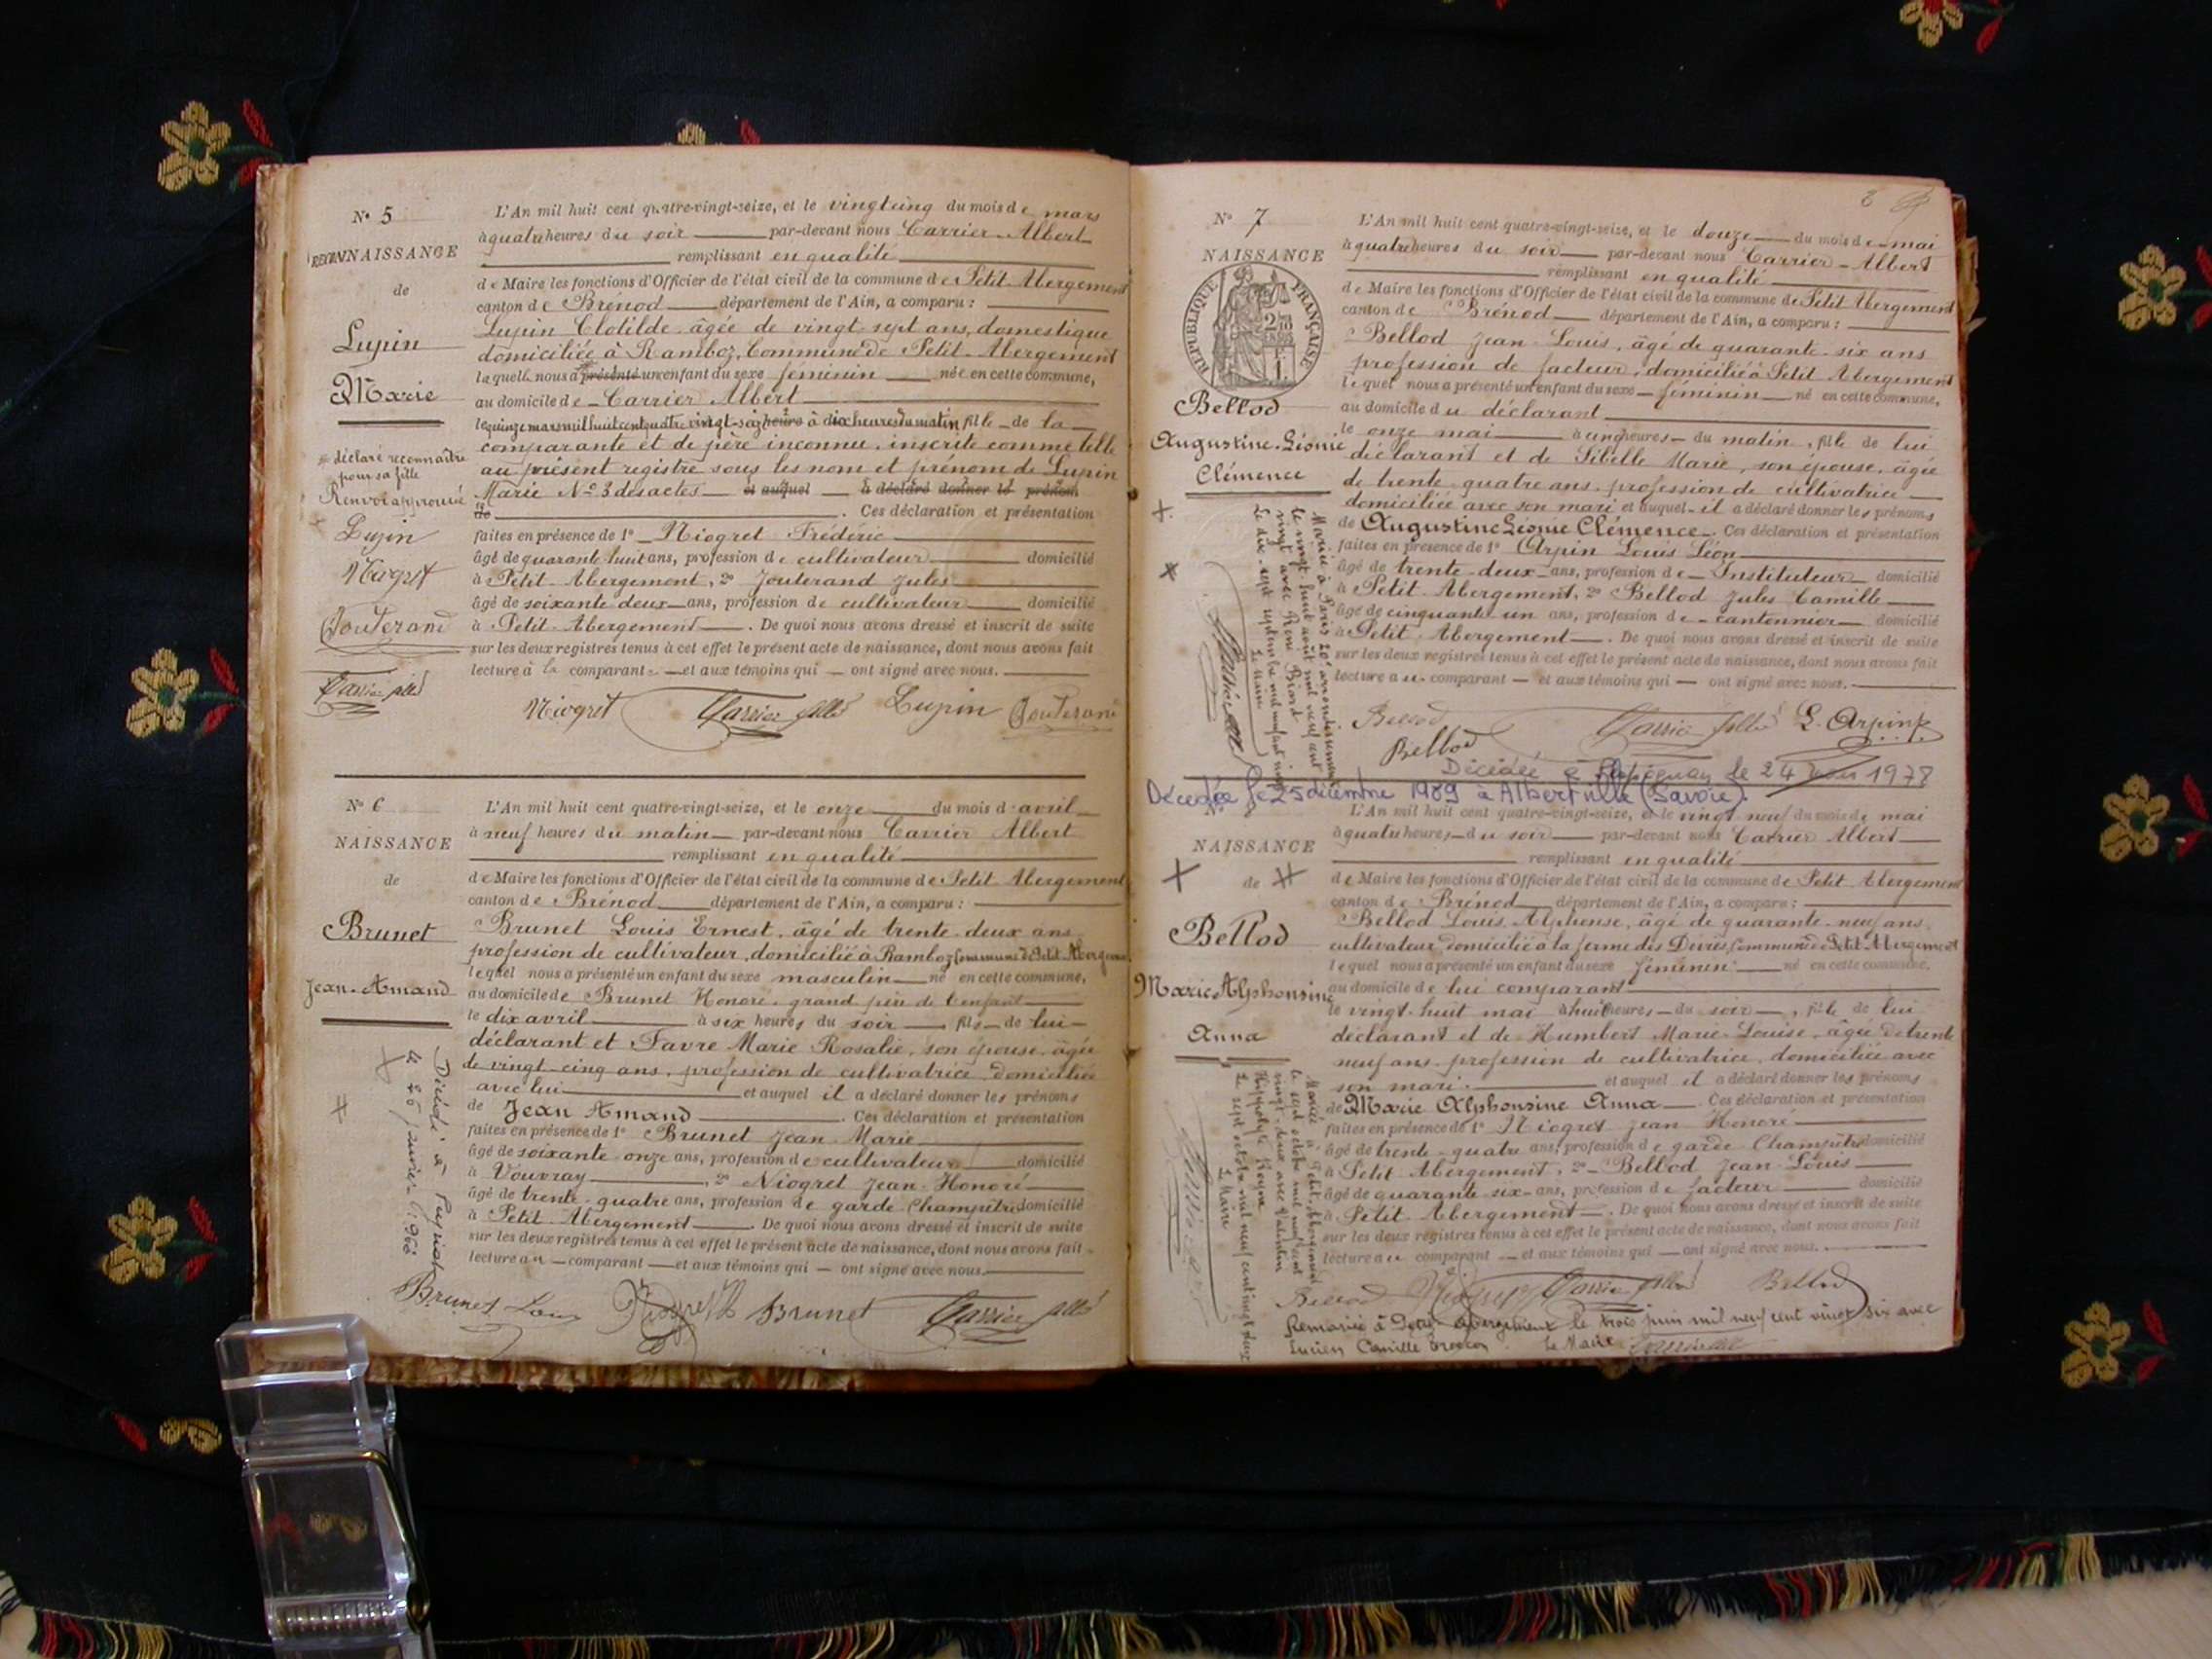 N° 5
RECONNAISSANCE
de
Lupin
Marie
déclaré reconnaître
pour sa fille
Renvoi approuvé
Lupin
Niogret
Jouterand
L'An mil huit cent quatre-vingt-seize, et le vingt cinq du mois de mars
à quatre heures du soir par-devant nous Carrier Albert
remplissant en qualité
de Maire les fonctions d'Officier de l'état civil de la commune de Petit Abergement
canton de Brénod département de l'Ain, a comparu :
Lupin Clotilde âgée de vingt sept ans, domestique
domiciliée à Ramboz, Commune de Petit-Abergement
laquelle nous a présenté un enfant du sexe féminin née en cette commune,
au domicile de Carrier Albert
le quinze mars mil huit cent quatre vingt-seize heures à dix heures du matin fille de la
comparante et de père inconnu, inscrite comme telle
au présent registre sous les nom et prénom de Lupin
Marie N° 3 des actes et auquel a déclaré donner le prénom
de . Ces déclaration et présentation
faites en présence de 1° Niogret Frédéric
âgé de quarante huit ans, profession de cultivateur domicilié
à Petit-Abergement, 2° Jouterand Jules
âgé de soixante deux ans, profession de cultivateur domicilié
à Petit-Abergement . De quoi nous avons dressé et inscrit de suite
sur les deux registres tenus à cet effet le présent acte de naissance, dont nous avons fait
lecture à la comparante et aux témoins qui ont signé avec nous.
Niogret Carrier Lupin Jouterand
N° 6
NAISSANCE
de
Brunet
Jean-Amand
Décédé à
le 26 janvier
L'An mil huit cent quatre-vingt-seize, et le onze du mois d'avril
à neuf heures du matin par-devant nous Carrier Albert
remplissant en qualité
de Maire les fonctions d'Officier de l'état civil de la commune de Petit Abergement
canton de Brénod département de l'Ain, a comparu :
Brunet Louis Ernest, âgé de trente deux ans
profession de cultivateur, domicilié à Ramboz Commune de Petit Abergement
lequel nous a présenté un enfant du sexe masculin né en cette commune,
au domicile de Brunet Honoré, grand père de l'enfant
le dix avril à six heures du soir fils de lui
déclarant et Favre Marie Rosalie, son épouse, âgée
de vingt-cinq ans, profession de cultivatrice, domiciliée
avec lui et auquel il a déclaré donner les prénoms
de Jean Amand . Ces déclaration et présentation
faites en présence de 1° Brunet Jean-Marie
âgé de soixante onze ans, profession de cultivateur domicilié
à Vouvray , 2° Niogret Jean-Honoré
âgé de trente-quatre ans, profession de garde Champêtre domicilié
à Petit-Abergement . De quoi nous avons dressé et inscrit de suite
sur les deux registres tenus à cet effet le présent acte de naissance, dont nous avons fait
lecture au comparant et aux témoins qui ont signé avec nous.
Brunet Louis Brunet Carrier
N° 7
NAISSANCE
RÉPUBLIQUE FRANÇAISE
Bellod
Augustine-Léonie
Clémence
Mariée à Paris 20e arrondissement
le vingt huit août mil neuf cent
vingt avec René Biard
Le dix-sept septembre mil neuf cent vingt
Le Maire
L'An mil huit cent quatre-vingt-seize, et le douze du mois de mai
à quatre heures du soir par-devant nous Carrier-Albert
remplissant en qualité
de Maire les fonctions d'Officier de l'état civil de la commune de Petit Abergement
canton de Brénod département de l'Ain, a comparu :
Bellod Jean-Louis, âgé de quarante-six ans
profession de facteur, domicilié à Petit Abergement
lequel nous a présenté un enfant du sexe féminin né en cette commune,
au domicile du déclarant
le onze mai à cinq heures du matin, fille de lui
déclarant et de Sibelle Marie, son épouse, âgée
de trente-quatre ans, profession de cultivatrice
domiciliée avec son mari et auquel il a déclaré donner les prénoms
de Augustine Léonie Clémence. Ces déclaration et présentation
faites en présence de 1° Arpin Louis Léon
âgé de trente-deux ans, profession de Instituteur domicilié
à Petit-Abergement, 2° Bellod Jules Camille
âgé de cinquante un ans, profession de cantonnier domicilié
à Petit-Abergement . De quoi nous avons dressé et inscrit de suite
sur les deux registres tenus à cet effet le présent acte de naissance, dont nous avons fait
lecture au comparant et aux témoins qui ont signé avec nous.
Bellod Carrier L. Arpin
Bellod
Décédée à le 24 1978
Décédée le 25 décembre 1989 à Albertville (Savoie).
N° 8
NAISSANCE
de
Bellod
Marie Alphonsine
Anna
Mariée à Petit Abergement
le sept octobre mil neuf cent
vingt-deux avec Valentin
Hippolyte
Le sept octobre mil neuf cent vingt deux
Le Maire
L'An mil huit cent quatre-vingt-seize, et le vingt neuf du mois de mai
à quatre heures du soir par-devant nous Carrier Albert
remplissant en qualité
de Maire les fonctions d'Officier de l'état civil de la commune de Petit Abergement
canton de Brénod département de l'Ain, a comparu :
Bellod Louis Alphonse, âgé de quarante-neuf ans
cultivateur domicilié à la ferme des Commune de Petit-Abergement
lequel nous a présenté un enfant du sexe féminin né en cette commune,
au domicile de lui comparant
le vingt-huit mai à huit heures du soir, fille de lui
déclarant et de Humbert Marie-Louise, âgée de trente
neuf ans, profession de cultivatrice, domiciliée avec
son mari. et auquel il a déclaré donner les prénoms
de Marie Alphonsine Anna . Ces déclaration et présentation
faites en présence de 1° Niogret Jean Honoré
âgé de trente-quatre ans, profession de garde Champêtre domicilié
à Petit Abergement, 2° Bellod Jean-Louis
âgé de quarante six ans, profession de facteur domicilié
à Petit-Abergement . De quoi nous avons dressé et inscrit de suite
sur les deux registres tenus à cet effet le présent acte de naissance, dont nous avons fait
lecture au comparant et aux témoins qui ont signé avec nous.
Bellod Niogret Carrier Bellod
Remariée à Petit Abergement le trois juin mil neuf cent vingt six avec
Lucien Camille Le Maire